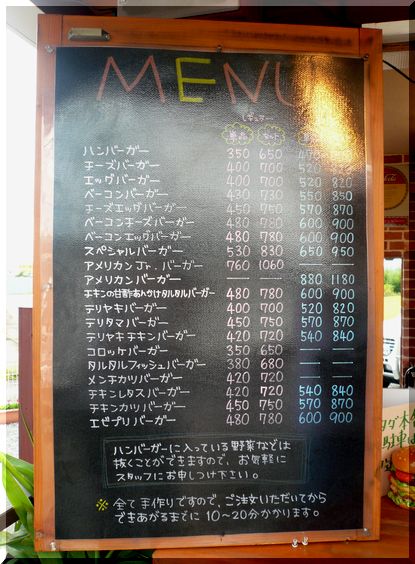 MENU
レギュラー
単品 セット
ハンバーガー 350 650 470
チーズバーガー 400 700 520 820
エッグバーガー 400 700 520 820
ベーコンバーガー 430 730 550 850
チーズエッグバーガー 450 750 570 870
ベーコンチーズバーガー 480 780 600 900
ベーコンエッグバーガー 480 780 600 900
スペシャルバーガー 530 830 650 950
アメリカンJr.バーガー 760 1060 — —
アメリカンバーガー — — 880 1180
チキンの甘酢あんかけタルタルバーガー 480 780 600 900
テリヤキバーガー 400 700 520 820
テリタマバーガー 450 750 570 870
テリヤキチキンバーガー 420 720 540 840
コロッケバーガー 350 650 — —
タルタルフィッシュバーガー 380 680 — —
メンチカツバーガー 420 720 — —
チキンレタスバーガー 420 720 540 840
チキンカツバーガー 450 750 570 870
エビプリバーガー 480 780 600 900
ハンバーガーに入っている野菜などは
抜くことができますので、お気軽に
スタッフにお申しつけ下さい。
※全て手作りですので、ご注文いただいてから
できあがるまでに 10〜20分かかります。